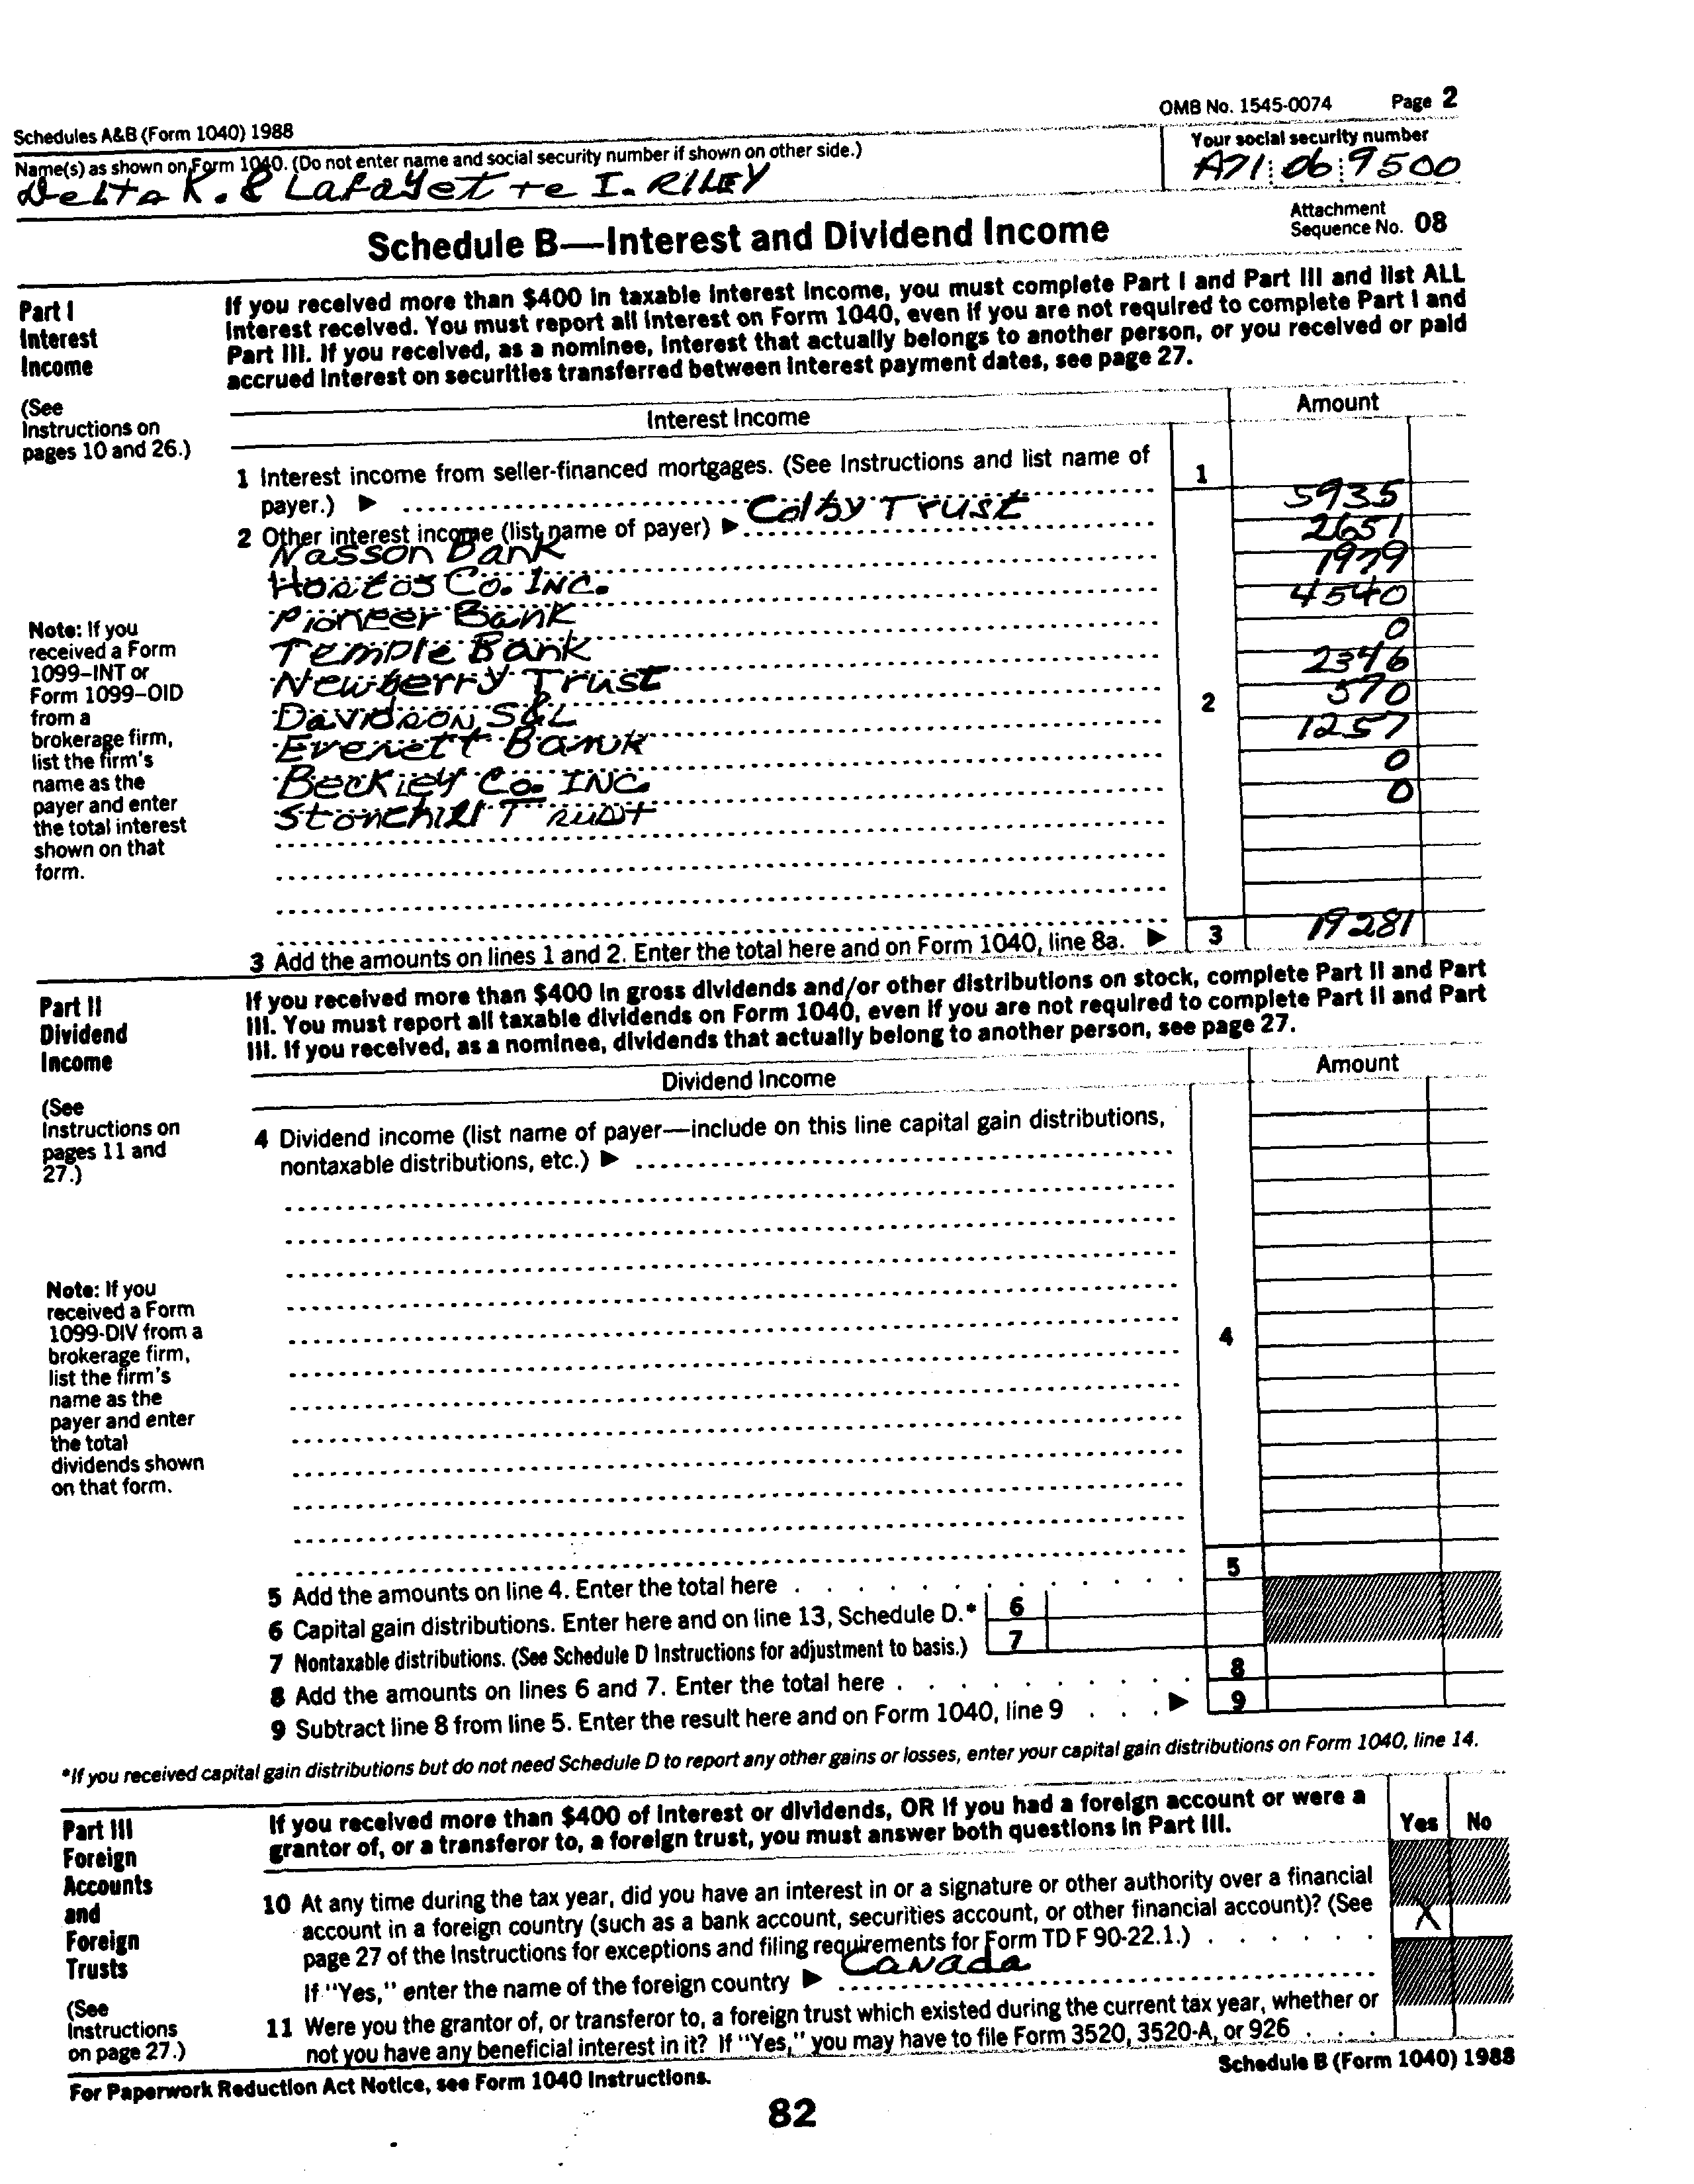 OMB No. 1545-0074 Page 2
Schedules A&B (Form 1040) 1988
Name(s) as shown on Form 1040. (Do not enter name and social security number if shown on other side.)
Your social security number
Delta K. & Lafayette I. RILEY
A71 06 9500
Schedule B—Interest and Dividend Income
Attachment
Sequence No. 08
Part I
Interest
Income
(See
Instructions on
pages 10 and 26.)
If you received more than $400 in taxable interest income, you must complete Part I and Part III and list ALL
interest received. You must report all interest on Form 1040, even if you are not required to complete Part I and
Part III. If you received, as a nominee, interest that actually belongs to another person, or you received or paid
accrued interest on securities transferred between interest payment dates, see page 27.
Interest Income
Amount
1 Interest income from seller-financed mortgages. (See Instructions and list name of
payer.) ▶
1
2 Other interest income (list name of payer) ▶ Colby Trust 5935
Nasson Bank 2651
Hostos Co. INC. 1979
Pioneer Bank 4540
Temple Bank 0
Newberry Trust 2346
Davidson S&L 570
2
Everett Bank 1257
Beckley Co. INC. 0
Stonehill Trust 0
Note: If you
received a Form
1099–INT or
Form 1099–OID
from a
brokerage firm,
list the firm's
name as the
payer and enter
the total interest
shown on that
form.
3 Add the amounts on lines 1 and 2. Enter the total here and on Form 1040, line 8a. ▶ 3 19281
Part II
Dividend
Income
(See
Instructions on
pages 11 and
27.)
If you received more than $400 in gross dividends and/or other distributions on stock, complete Part II and Part
III. You must report all taxable dividends on Form 1040, even if you are not required to complete Part II and Part
III. If you received, as a nominee, dividends that actually belong to another person, see page 27.
Dividend Income
Amount
4 Dividend income (list name of payer—include on this line capital gain distributions,
nontaxable distributions, etc.) ▶
4
Note: If you
received a Form
1099-DIV from a
brokerage firm,
list the firm's
name as the
payer and enter
the total
dividends shown
on that form.
5 Add the amounts on line 4. Enter the total here 5
6 Capital gain distributions. Enter here and on line 13, Schedule D.* 6
7 Nontaxable distributions. (See Schedule D Instructions for adjustment to basis.) 7
8 Add the amounts on lines 6 and 7. Enter the total here 8
9 Subtract line 8 from line 5. Enter the result here and on Form 1040, line 9 ▶ 9
*If you received capital gain distributions but do not need Schedule D to report any other gains or losses, enter your capital gain distributions on Form 1040, line 14.
Part III
Foreign
Accounts
and
Foreign
Trusts
(See
Instructions
on page 27.)
If you received more than $400 of interest or dividends, OR if you had a foreign account or were a
grantor of, or a transferor to, a foreign trust, you must answer both questions in Part III.
Yes No
10 At any time during the tax year, did you have an interest in or a signature or other authority over a financial
account in a foreign country (such as a bank account, securities account, or other financial account)? (See
page 27 of the Instructions for exceptions and filing requirements for Form TD F 90-22.1.) X
If "Yes," enter the name of the foreign country ▶ Canada
11 Were you the grantor of, or transferor to, a foreign trust which existed during the current tax year, whether or
not you have any beneficial interest in it? If "Yes," you may have to file Form 3520, 3520-A, or 926
For Paperwork Reduction Act Notice, see Form 1040 Instructions.
Schedule B (Form 1040) 1988
82